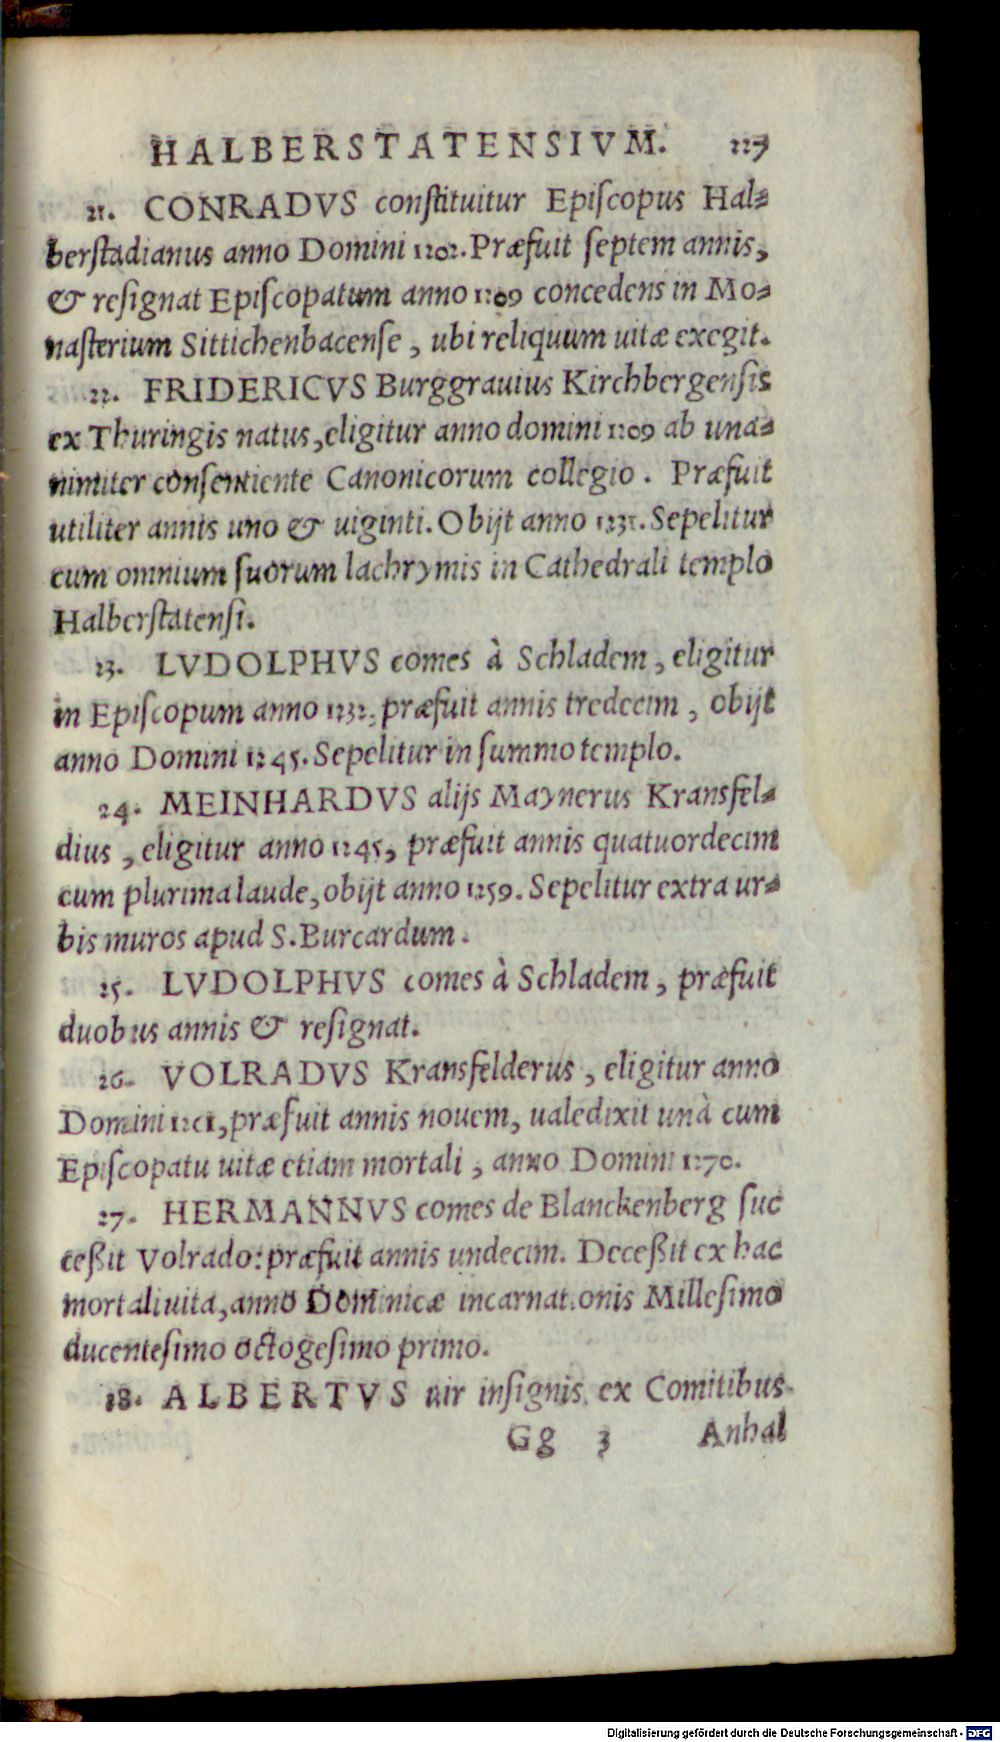 HALBERSTATENSIVM. 227
21. CONRADVS conſtituitur Epiſcopus Hal⸗
berſtadianus anno Domini 1202. Præfuit ſeptem annis,
& reſignat Epiſcopatum anno 1209 concedens in Mo⸗
naſterium Sittichenbacenſe, ubi reliquum uitæ exegit.
22. FRIDERICVS Burggrauius Kirchbergenſis
ex Thuringis natus, eligitur anno domini 1209 ab una⸗
nimiter conſentiente Canonicorum collegio. Præfuit
utiliter annis uno & uiginti. Obijt anno 1231. Sepelitur
cum omnium ſuorum lachrymis in Cathedrali templo
Halberſtatenſi.
23. LVDOLPHVS comes à Schladem, eligitur
in Epiſcopum anno 1232, præfuit annis tredecim, obijt
anno Domini 1245. Sepelitur in ſummo templo.
24. MEINHARDVS alijs Maynerus Kransfel⸗
dius, eligitur anno 1245, præfuit annis quatuordecim
cum plurima laude, obijt anno 1259. Sepelitur extra ur⸗
bis muros apud S. Burcardum.
25. LVDOLPHVS comes à Schladem, præfuit
duobus annis & reſignat.
26. VOLRADVS Kransfelderus, eligitur anno
Domini 1261, præfuit annis nouem, ualedixit unà cum
Epiſcopatu uitæ etiam mortali, anno Domini 1270.
27. HERMANNVS comes de Blanckenberg ſuc
ceßit Volrado: præfuit annis undecim. Deceßit ex hac
mortali uita, anno Dominicæ incarnationis Milleſimo
ducenteſimo octogeſimo primo.
28. ALBERTVS uir inſignis ex Comitibus
Gg 3 Anhal
Digitalisierung gefördert durch die Deutsche Forschungsgemeinschaft - DFG